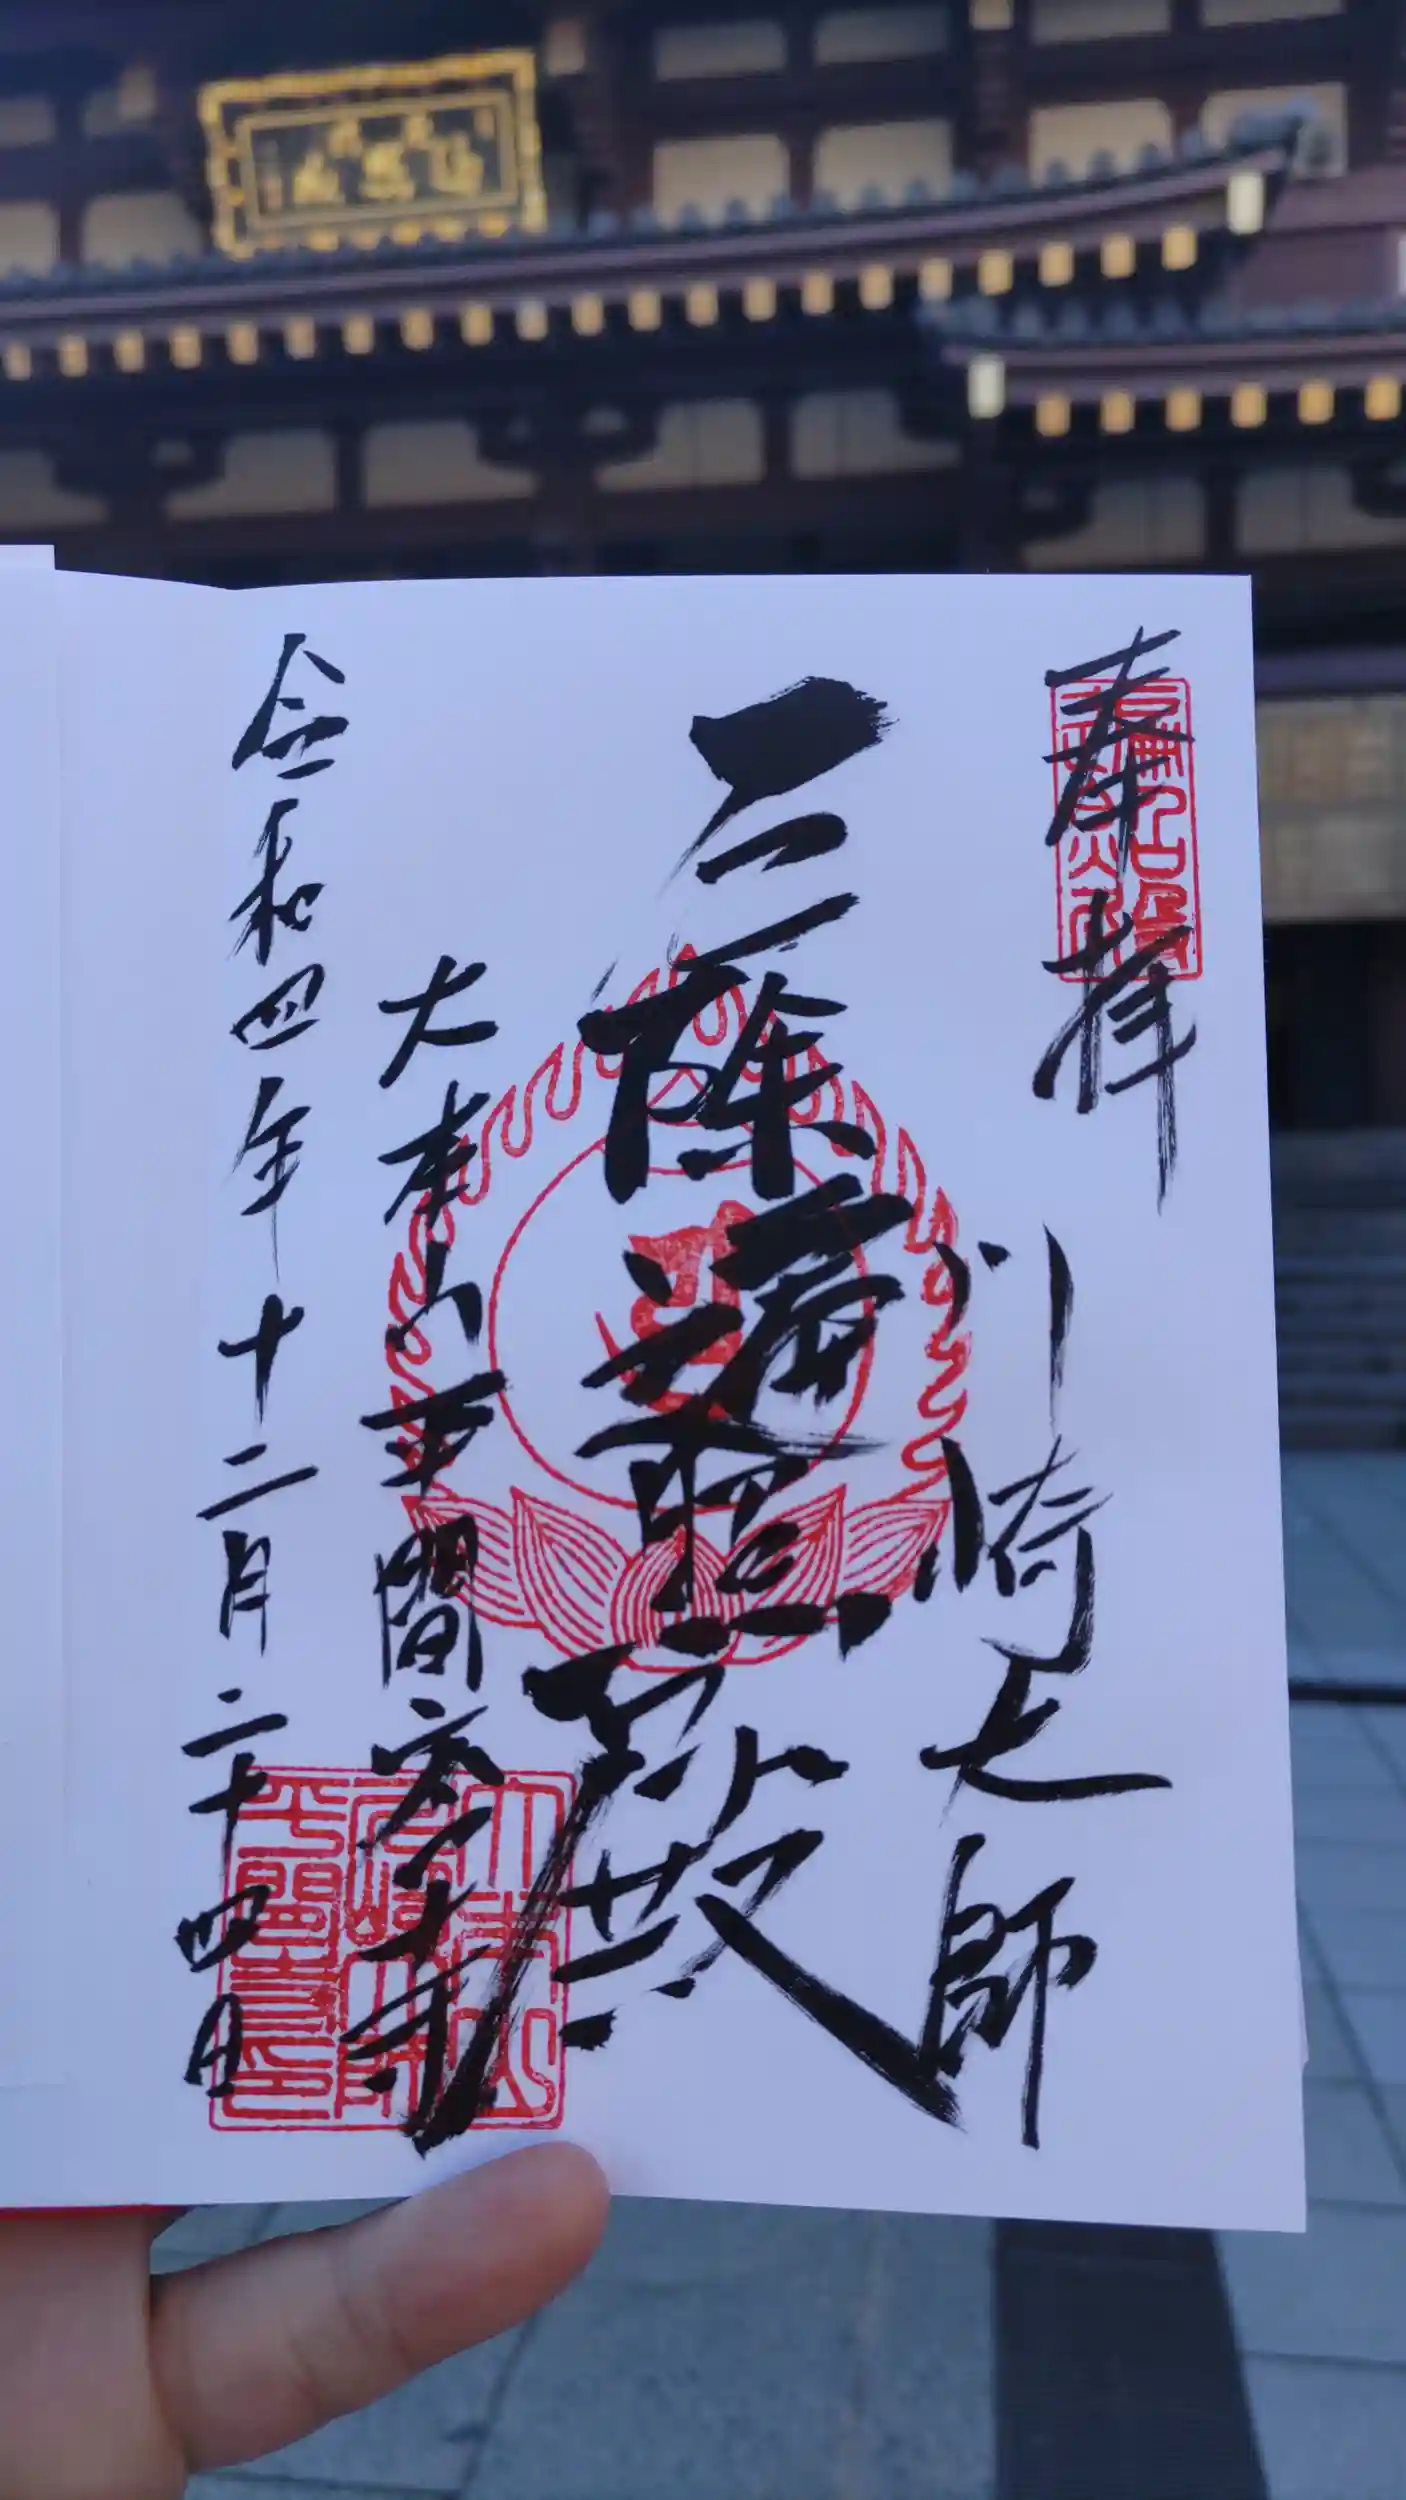 奉拝
川崎大師
除遍照殿
大本山平間寺
令和四年十二月二十四日
大本山
川崎大師
平間寺印